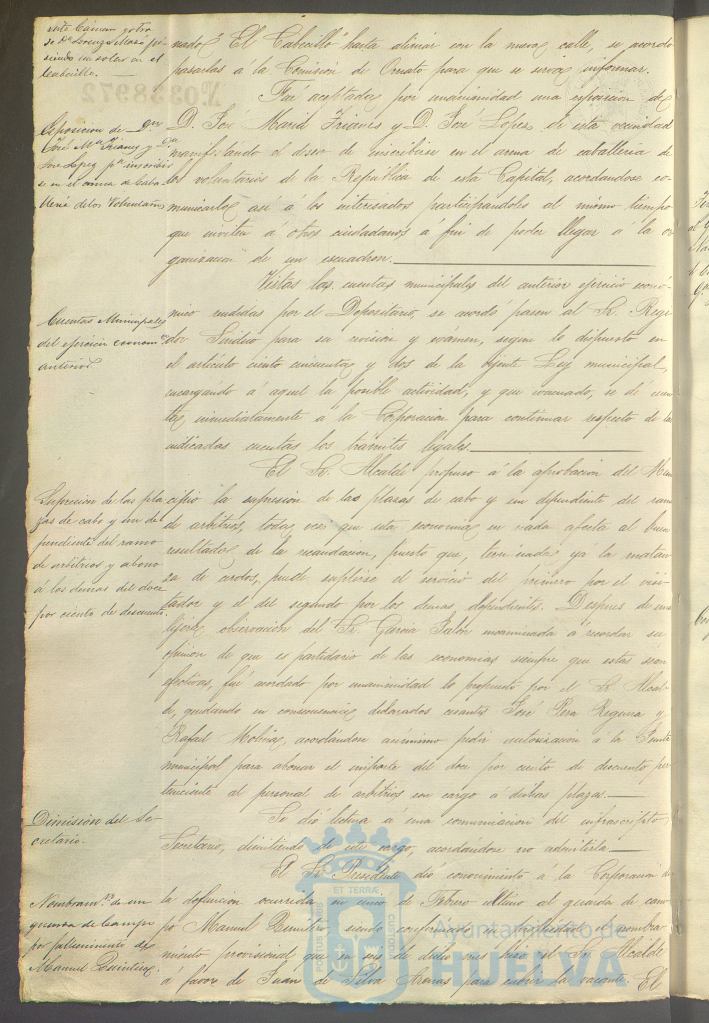 sente Cámara y otra
de Dn. Lorenzo Mozo pi-
diendo un solar en el
Cabecillo.
nado "El Cabecillo" hasta alinear con la nueva calle, se acordó
pasarlas á la Comisión de Ornato para que se sirva informar.
Nº 0338972
Exposicion de Dn.
José Mª Frianes y Dn.
José Lopez pª inscribir-
se en el arma de Caba-
lleria de los Voluntarios
Fué aceptada por unanimidad una exposicion de
D. José Maria Frianes y D. José López de esta vecindad
manifestando el deseo de inscribirse en el arma de caballeria de
los voluntarios de la República de esta Capital, acordándose co-
municarlo así á los interesados participándoles al mismo tiempo
que inviten á otros ciudadanos á fin de poder llegar á la or
ganizacion de un escuadron.
Cuentas Municipales
del ejercicio economº
anterior
Vistas las cuentas municipales del anterior ejercicio econó-
mico rendidas por el Depositario, se acordó pasen al Sr. Regi-
dor Sindico para su revision y exámen, segun lo dispuesto en
el artículo ciento cincuenta y dos de la vijente Ley municipal,
encargando á aquel la posible actividad, y que evacuado, se dé cuen-
ta inmediatamente á la Corporacion para continuar respecto de las
indicadas cuentas los trámites legales.
Supresion de las pla-
zas de cabo y un de-
pendiente del ramo
de arbitrios y abono
á los demas del doce
por ciento de descuento.
El Sr. Alcalde propuso á la aprobacion del Muni
cipio la supresion de las plazas de cabo y un dependiente del ramo
de arbitrios, toda vez que esta economia en nada afecta al buen
resultado de la recaudacion, puesto que, terminada ya la matan-
za de cerdos, puede suplirse el servicio del primero por el visi-
tador y el del segundo por los demas dependientes. Despues de una
lijera observacion del Sr. Garcia Jalon encaminada á recordar su
opinion de que es partidario de las economias siempre que estas sean
efectivas, fué acordado por unanimidad lo propuesto por el Sr. Alcal-
de, quedando en consecuencia declarados cesantes José Pera Reguera y
Rafael Molina, acordándose asimismo pedir autorizacion á la Junta
municipal para abonar el importe del doce por ciento de descuento per-
teneciente al personal de arbitrios con cargo á dichas plazas.
Dimision del Se-
cretario.
Se dió lectura á una comunicacion del infrascripto
Secretario, dimitiendo de este cargo, acordándose no admitirla.
Nombramto. de un
guarda de campo
por fallecimiento de
Manuel Quintero
El Sr. Presidente dió conocimiento á la Corporacion de
la defuncion ocurrida en cinco de Febrero último al guarda de cam-
po Manuel siendo confirmado el nombra-
miento provisional que en seis de dicho mes hizo el Sr. Alcalde
á favor de Juan de Silva Arenas para cubrir la vacante. El
Ayuntamiento de
HUELVA
PORTUS MARIS ET TERRÆ CUSTODIA